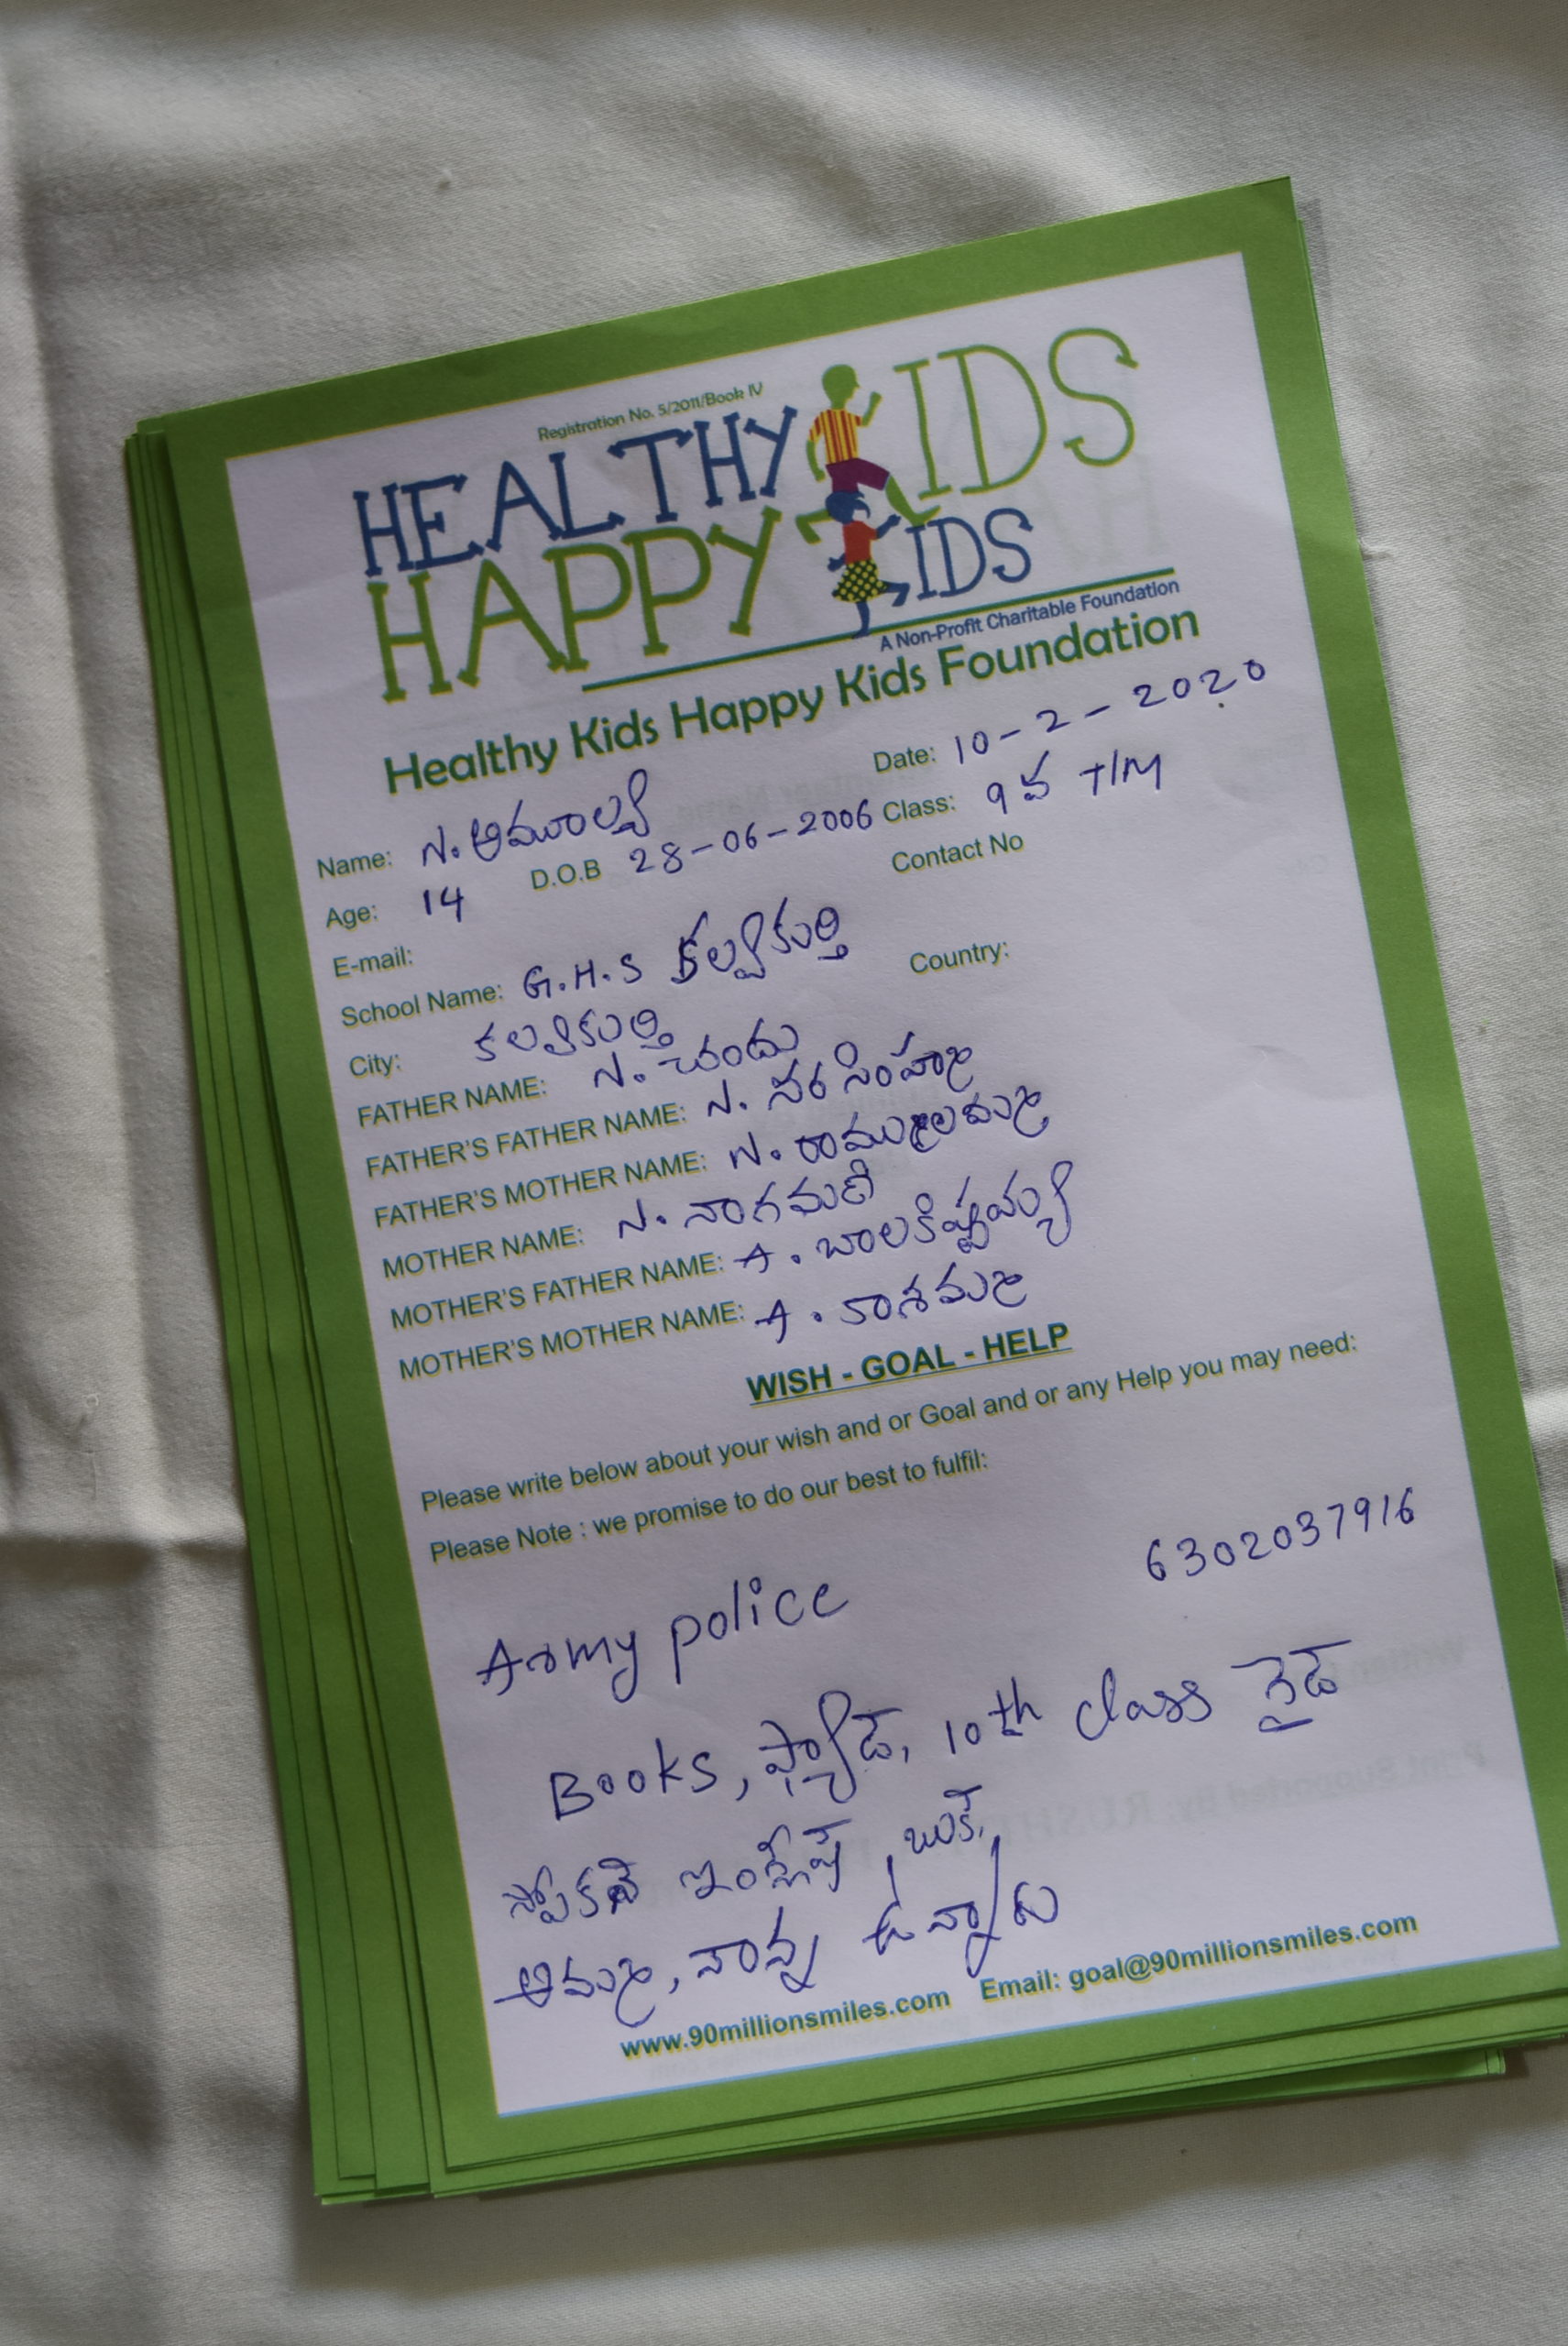 Registration No. 5/2011/Book IV
HEALTHY KIDS
HAPPY KIDS
A Non-Profit Charitable Foundation
Healthy Kids Happy Kids Foundation
Date: 10-2-2020
Name: N. అమూల్య
Class: 9వ T/M
Age: 14 D.O.B 28-06-2006
Contact No
E-mail:
School Name: G.H.S కల్వకుర్తి
Country:
City: కలవకుర్తి
FATHER NAME: N. చందు
FATHER'S FATHER NAME: N. నరసింహ
FATHER'S MOTHER NAME: N. రాములమ్మ
MOTHER NAME: N. నాగమణి
MOTHER'S FATHER NAME: A. బాలకిష్టయ్య
MOTHER'S MOTHER NAME: A. కాశమ్మ
WISH - GOAL - HELP
Please write below about your wish and or Goal and or any Help you may need:
Please Note : we promise to do our best to fulfil:
6302037916
Army police
Books, ప్యాడ్, 10th class గైడ్
స్పోకెన్ ఇంగ్లీష్, బుక్,
అమ్మ, నాన్న ఉన్నారు
www.90millionsmiles.com Email: goal@90millionsmiles.com